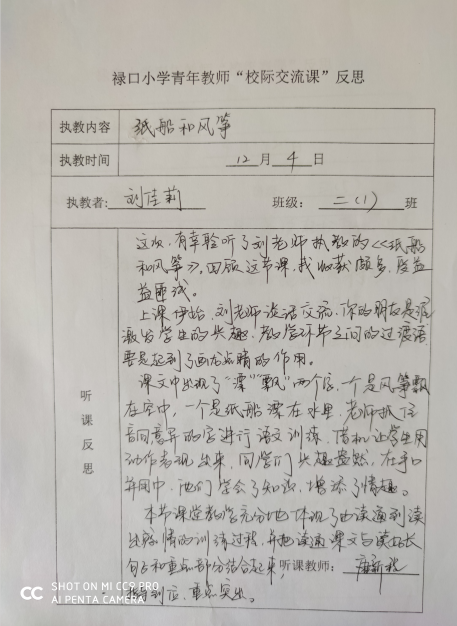 禄口小学青年教师“校际交流课”反思
执教内容 纸船和风筝
执教时间 12 月 4 日
执教者: 刘佳莉 班级: 二(1) 班
听课反思
这次,有幸聆听了刘老师执教的《纸船
和风筝》,回顾这节课,我收获颇多,受益
益匪浅。
上课伊始,刘老师谈话交流,你的朋友是谁
激发学生的兴趣,教学环节之间的过渡语
要是起到了画龙点睛的作用。
课文中出现了“漂”“飘”两个字,一个是风筝飘
在空中,一个是纸船漂在水里,老师抓住
音同意异的字进行语文训练,借机让学生用
动作表现出来,同学们兴趣盎然,在手口
并用中,他们学会了知识,增添了情趣。
本节课堂教学充分地体现了由读通到读
出感情的训练过程,并把读通课文与读好长
句子和重点部分结合起来, 听课教师:
到位,重点突出。
SHOT ON MI CC9 PRO
AI PENTA CAMERA